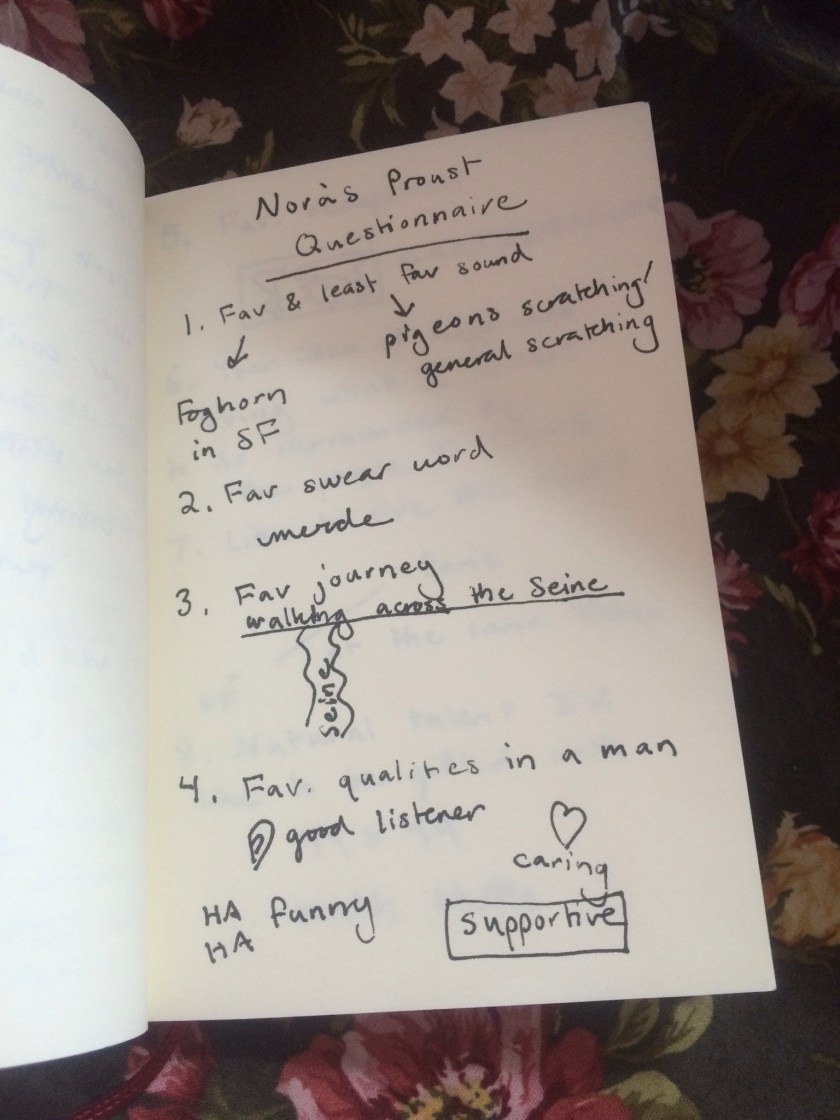 Nora's Proust
Questionnaire
1. Fav & least fav sound
pigeons scratching/
general scratching
Foghorn
in SF
2. Fav swear word
merde
3. Fav journey
walking across the Seine
Seine
4. Fav. qualities in a man
good listener
caring
HA
HA
funny
supportive